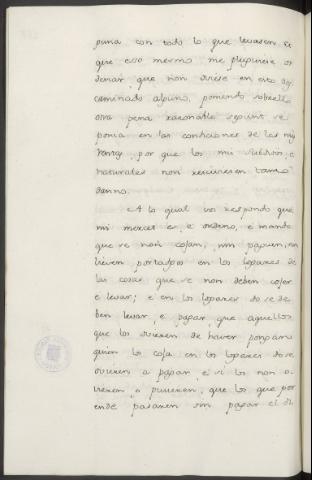 pena con todo lo que levasen e
que eso mesmo me pluguiese or
denar, que non oviese en esto des
caminado alguno, poniendo sobrello
otra pena rasonable segunt se
ponia en las condiciones de las mis
rentas, por que los mis subditos, e
naturales non reciviesen tanto
danno.
A lo qual vos respondo que
mi merced es e ordeno, e mando
que se non cojan, nin paguen, nin
lieven portasgos en los logares de
las cosas que se non deben coger
e levar; e en los logares do se de
ben levar, e pagar, que aquellos
que los ovieren de haver pongan
quien los coja en los logares do se
ovieren a pagar, e si los non o
vieren, o pusieren, que los que por
ende pasaren sin pagar el di